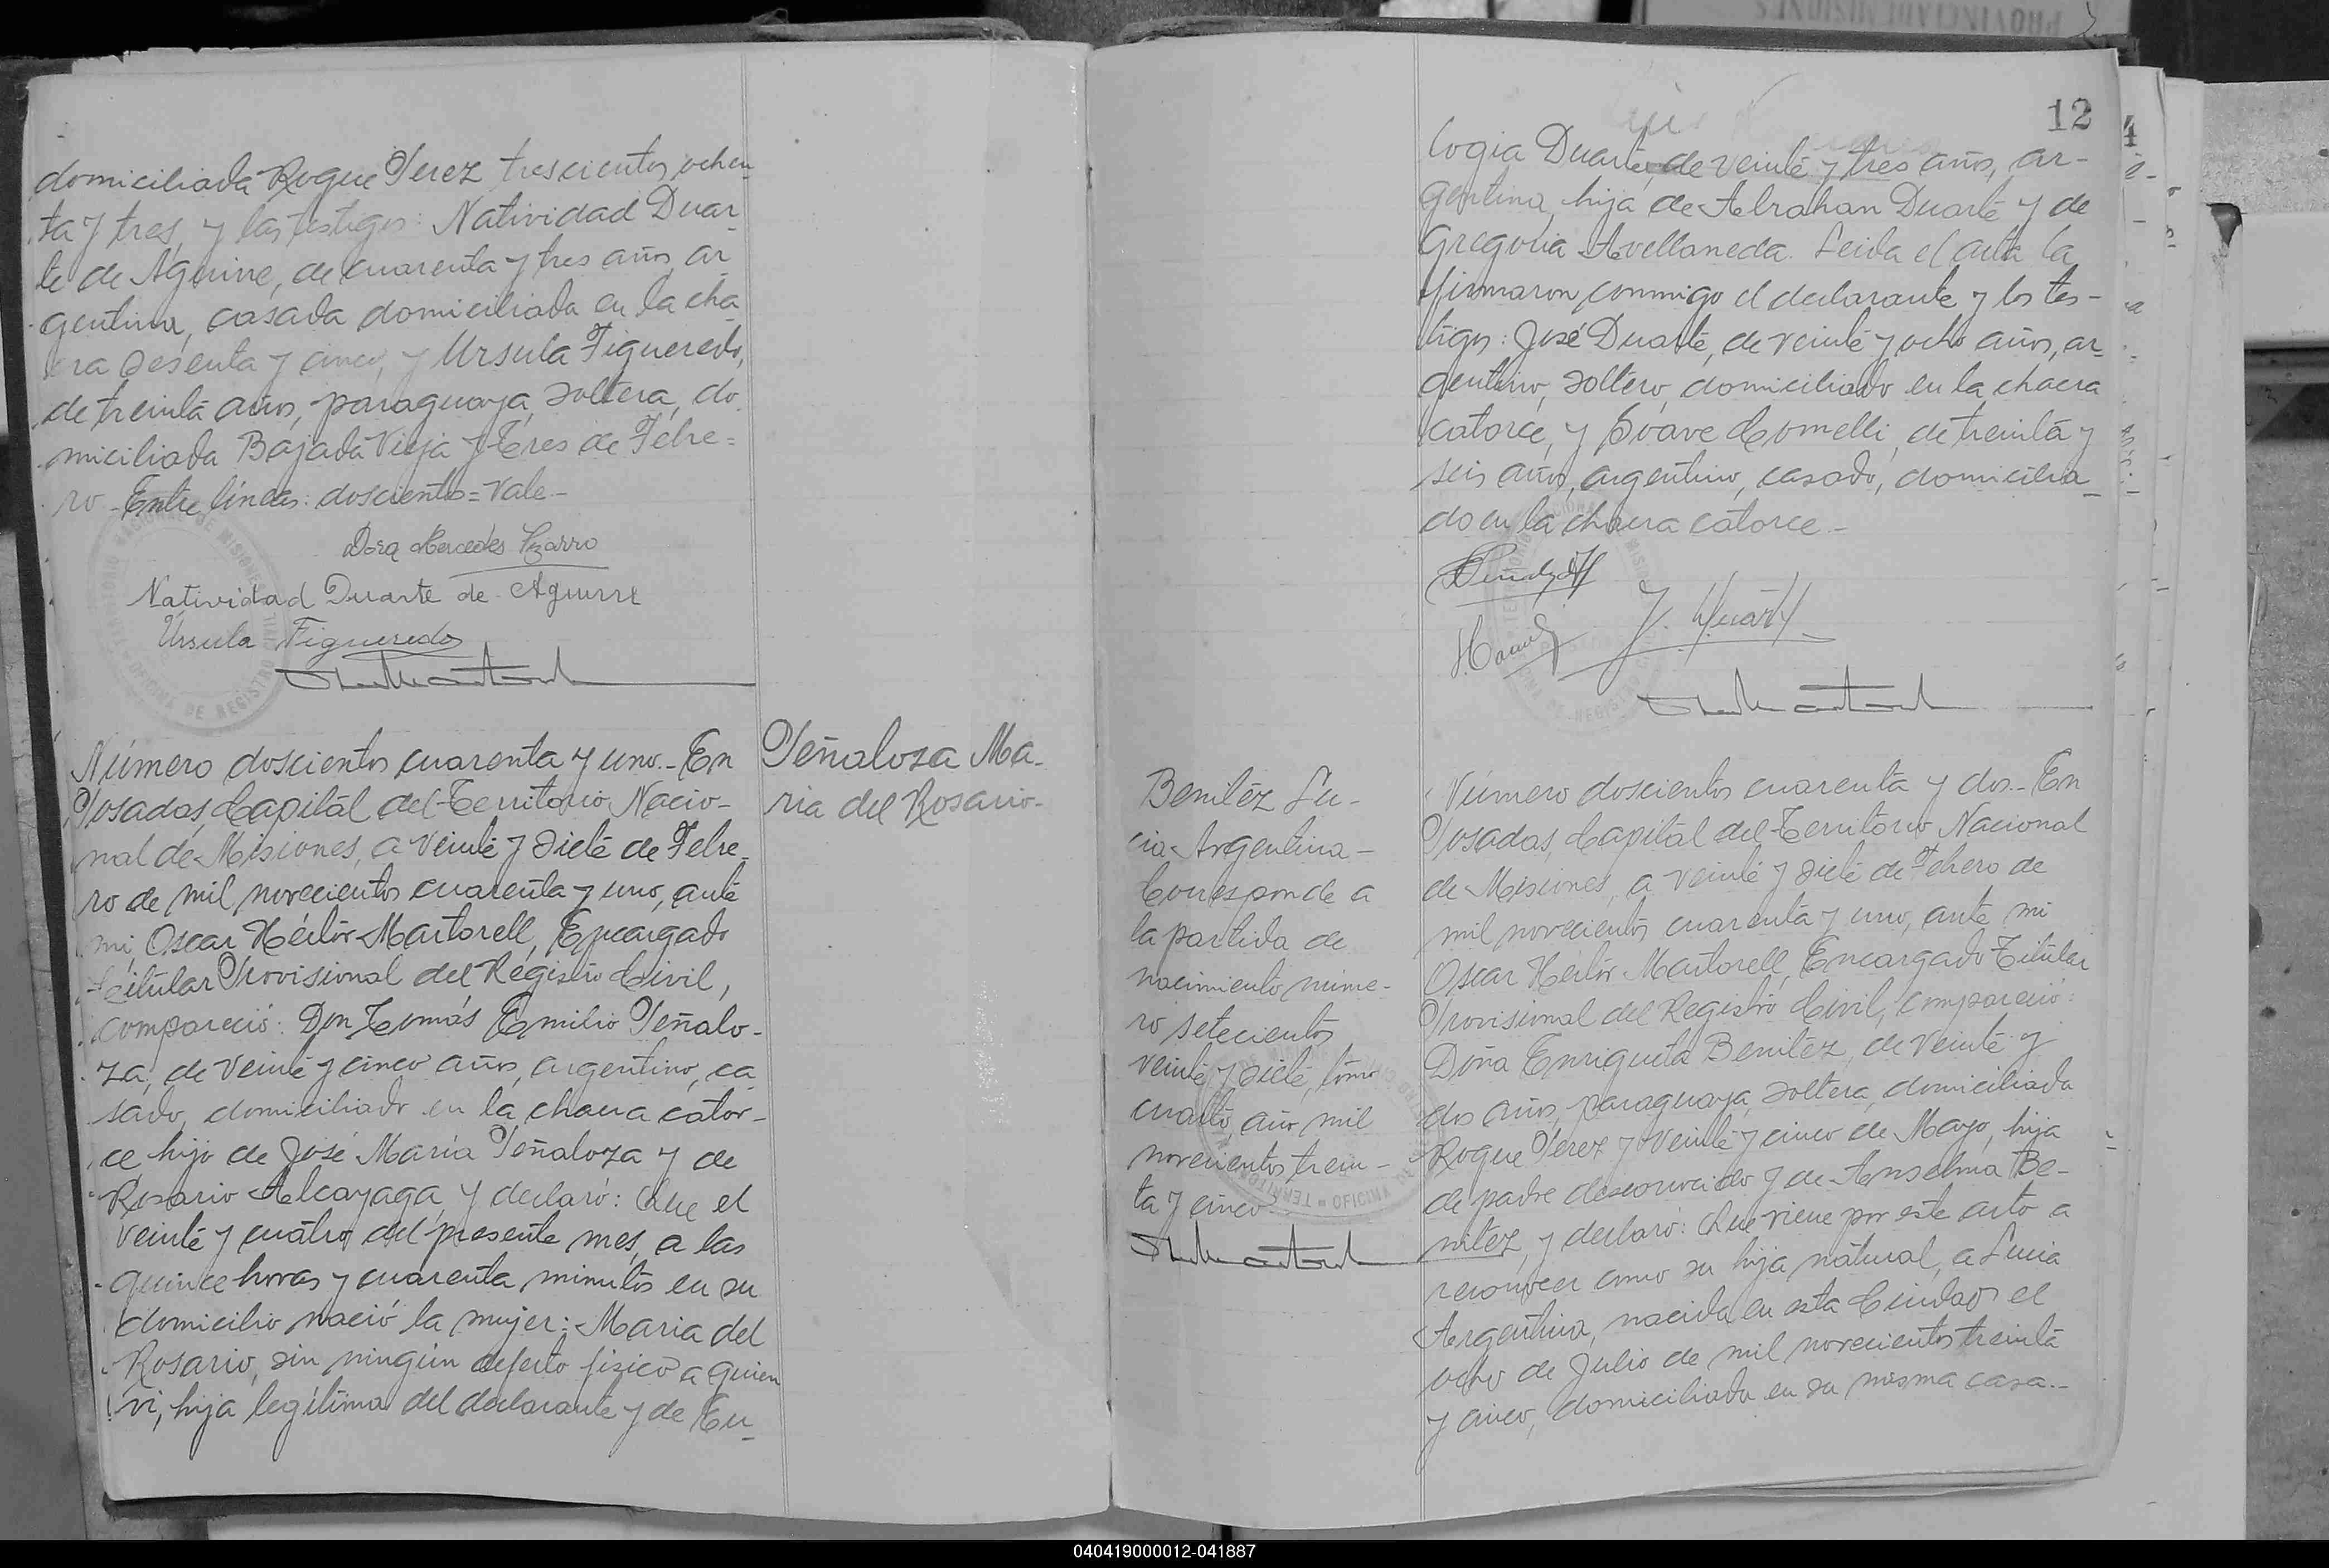 PROVINCIA DE MISIONES
domiciliada Roque Perez trescientos ochen
ta y tres, y las testigos: Natividad Duar
te de Aguirre, de cuarenta y tres años, ar
gentina, casada domiciliada en la cha
cra sesenta y cinco, y Ursula Figueredo,
de treinta años, paraguaya, soltera, do
miciliada Bajada Vieja y Tres de Febre=
ro - Entre líneas: doscientos = Vale -
Dora Mercedes
Natividad Duarte de Aguirre
Ursula Figueredo
Número doscientos cuarenta y uno. - En
Posadas, Capital del Territorio Nacio-
nal de Misiones, a veinte y siete de Febre_
ro de mil novecientos cuarenta y uno, ante
mi, Oscar Héctor Martorell, Encargado
Titular Provisional del Registro Civil,
compareció: Don Tomás Emilio Peñalo-
za, de veinte y cinco años, argentino, ca
sado, domiciliado en la chacra cator-
ce hijo de José María Peñaloza y de
Rosario Alcayaga, y declaró: Que el
veinte y cuatro del presente mes, a las
quince horas y cuarenta minutos en su
domicilio nació la mujer: Maria del
Rosario, sin ningún defecto físico a quien
ví, hija legítima del declarante y de Eu_
Peñalosa Ma-
ria del Rosario-
12
logia Duarte, de veinte y tres años, ar-
gentina, hija de Abrahan Duarte y de
Gregoria Avellaneda. Leida el acta la
firmaron conmigo el declarante y los tes-
tigos: José Duarte, de veinte y ocho años, ar_
gentino, soltero, domiciliado en la chacra
catorce, y Suave Comelli, de treinta y
seis años, argentino, casado, domicilia_
do en la chacra catorce -
J. Duarte
Benitez Lu-
cia Argentina -
Corresponde a
la partida de
nacimiento núme-
ro setecientos
veinte y siete, tomo
cuarto, año mil
novecientos trein-
ta y cinco
Número doscientos cuarenta y dos. - En
Posadas, Capital del Territorio Nacional
de Misiones, a veinte y siete de Febrero de
mil novecientos cuarenta y uno, ante mi
Oscar Héctor Martorell, Encargado Titular
Provisional del Registro Civil, compareció:
Doña Enriqueta Benitez, de veinte y
dos años, paraguaya, soltera, domiciliada
Roque Perez y Veinte y cinco de Mayo, hija
de padre desconocido y de Anselma Be-
nitez, y declaró: Que viene por este acto a
reconocer como su hija natural, a Lucia
Argentina, nacida en esta Ciudad el
ocho de Julio de mil novecientos treinta
y cinco, domiciliada en su misma casa. -
040419000012-041887